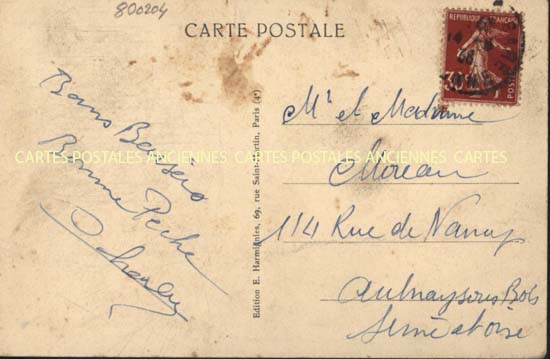 800204
CARTE POSTALE
RÉPUBLIQUE FRANÇAISE
POSTES
Bons Baisers
Bonne Pêche
Edition E. Harmignies, 69, rue Saint-Martin, Paris (4e)
Mr et Madame
Moreau
114 Rue de Nancy
Aulnay sous Bois
Seine et oise
CARTES POSTALES ANCIENNES CARTES POSTALES ANCIENNES CARTES